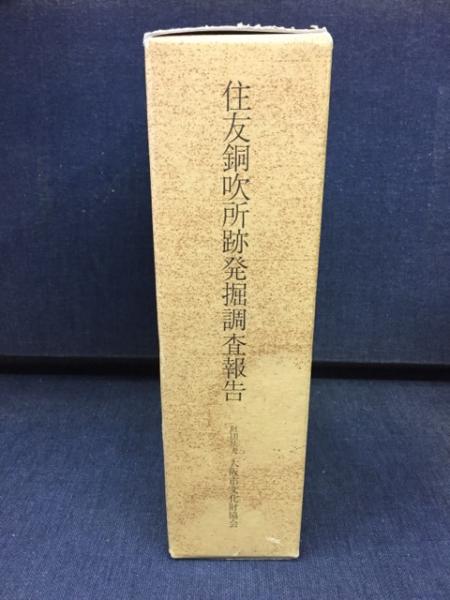 住友銅吹所跡発掘調査報告
財団法人 大阪市文化財協会